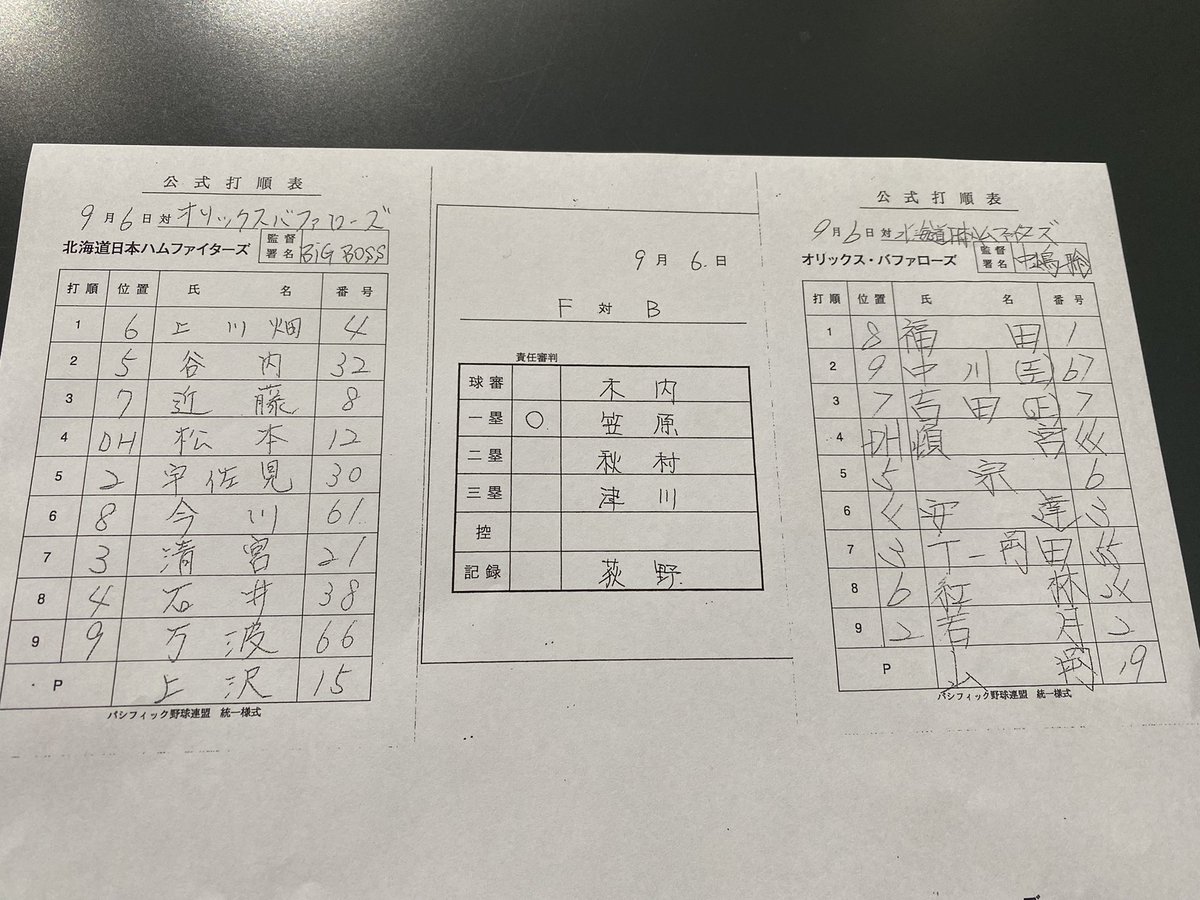 公式打順表
9月6日対オリックスバファローズ
北海道日本ハムファイターズ 監督署名 BIG BOSS
打順 位置 氏名 番号
1 6 上川畑 4
2 5 谷内 32
3 7 近藤 8
4 DH 松本 12
5 2 宇佐見 30
6 8 今川 61
7 3 清宮 21
8 4 石井 38
9 9 万波 66
P 上沢 15
パシフィック野球連盟 統一様式
9月6.日
F対B
責任審判
球審 木内
一塁 ○ 笠原
二塁 秋村
三塁 津川
控
記録 荻野
公式打順表
9月6日対北海道日本ハムファイターズ
オリックス・バファローズ 監督署名 中嶋聡
打順 位置 氏名 番号
1 8 福田 1
2 9 中川(圭) 67
3 7 吉田(正) 7
4 DH 頓宮 44
5 5 宗 6
6 4 安達 3
7 3 T-岡田 55
8 6 紅林 24
9 2 若月 2
P 山岡 19
パシフィック野球連盟 統一様式